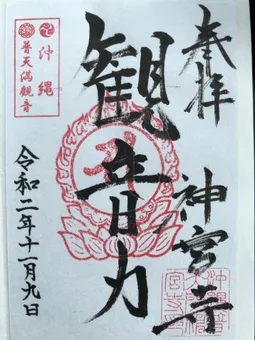 奉拝
神宮寺
観音力
沖縄
普天満観音
令和二年十一月九日